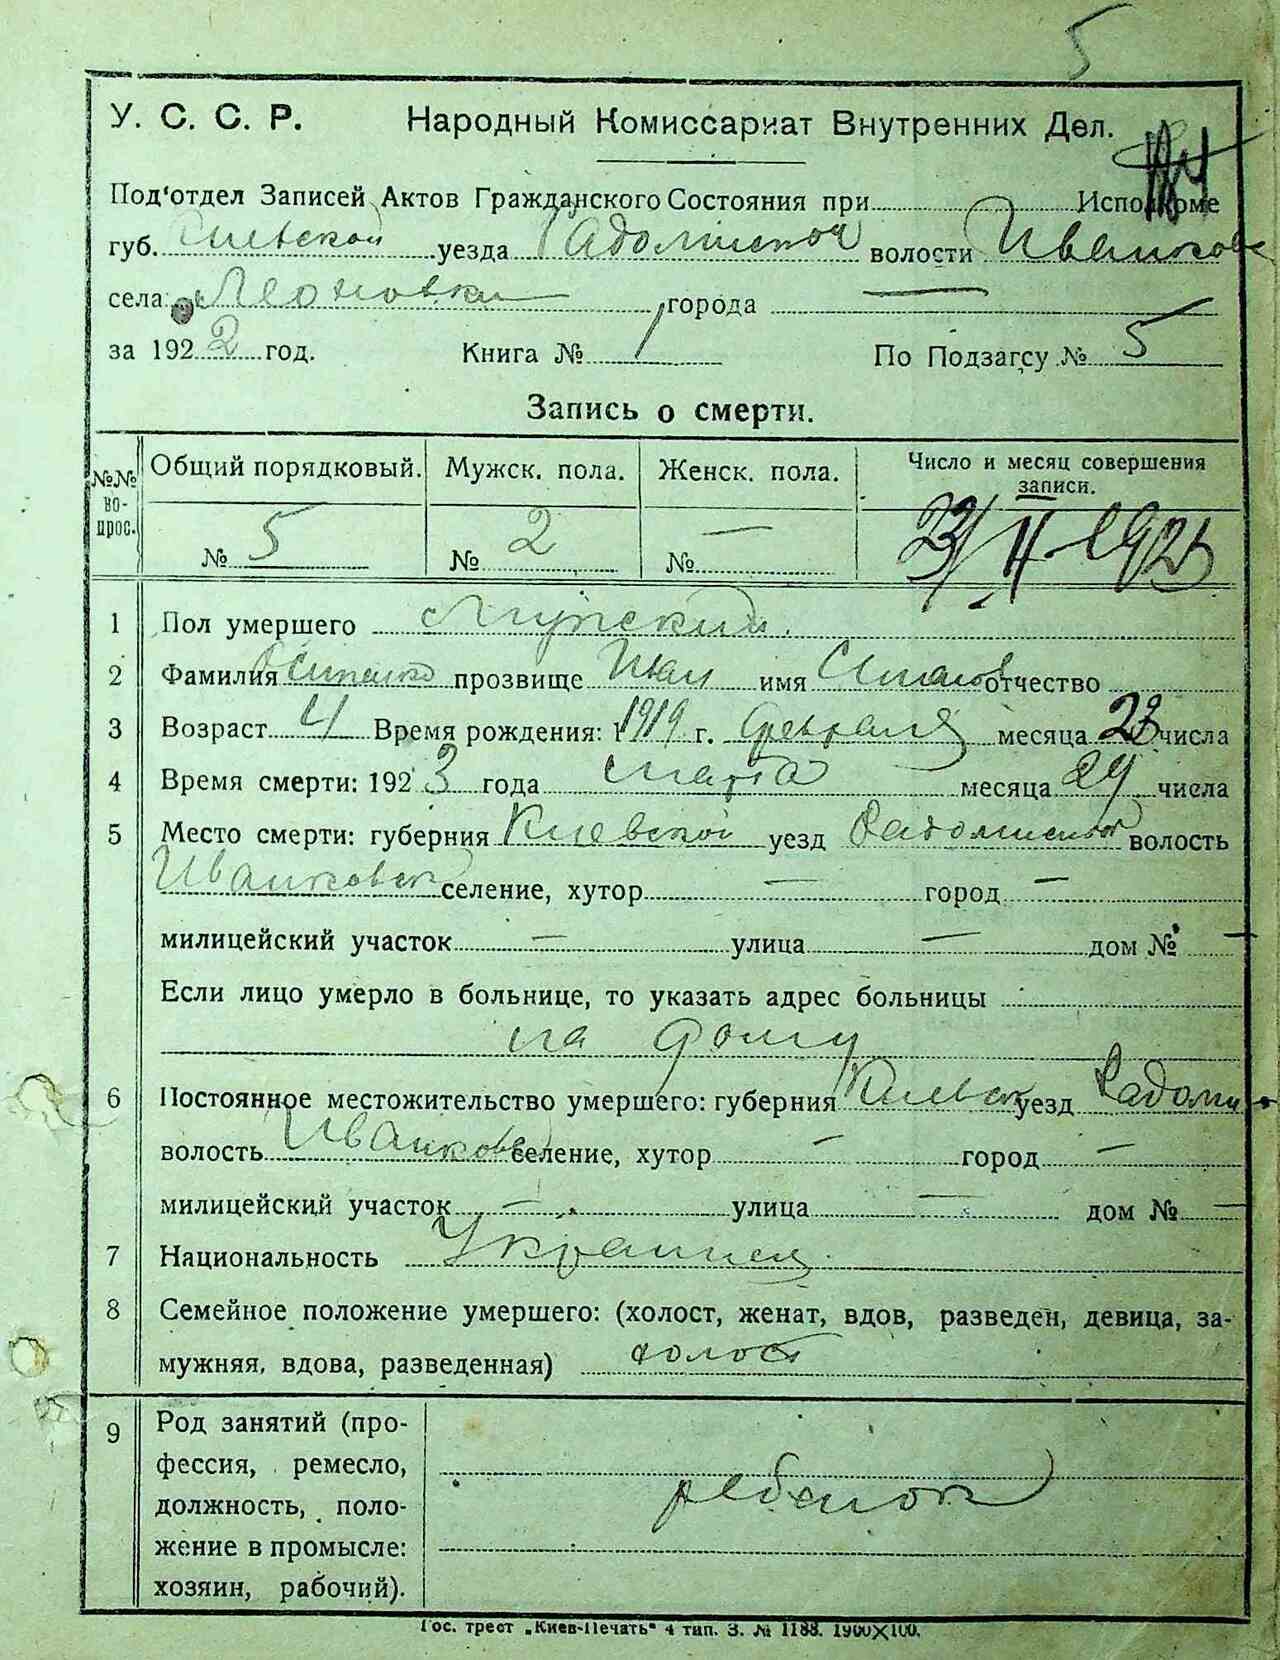 5
У. С. С. Р. Народный Комиссариат Внутренних Дел.
Под‘отдел Записей Актов Гражданского Состояния при Исполкоме
губ. Киевской уезда Радомиской волости Иванков
села Леоновки города —
за 1922 год. Книга № 1 По Подзагсу № 5
Запись о смерти.
№№ вопрос. Общий порядковый. Мужск. пола. Женск. пола. Число и месяц совершения записи.
№ 5 № 2 № —
1 Пол умершего Мужский.
2 Фамилия прозвище Иван имя отчество
3 Возраст 4 Время рождения: 1919 г. февраля месяца числа
4 Время смерти: 1923 года марта месяца числа
5 Место смерти: губерния Киевской уезд Радомиской волость
Иванковск селение, хутор — город —
милицейский участок — улица — дом № —
Если лицо умерло в больнице, то указать адрес больницы
на дому
6 Постоянное местожительство умершего: губерния Киевск уезд Радоми
волость Иванков селение, хутор — город —
милицейский участок — улица — дом № —
7 Национальность Украинец
8 Семейное положение умершего: (холост, женат, вдов, разведен, девица, за-
мужняя, вдова, разведенная) холост
9 Род занятий (про-
фессия, ремесло,
должность, поло-
жение в промысле:
хозяин, рабочий).
ребенок
Гос. трест „Киев-Печать“ 4 тип. З. № 1188. 1900×100.